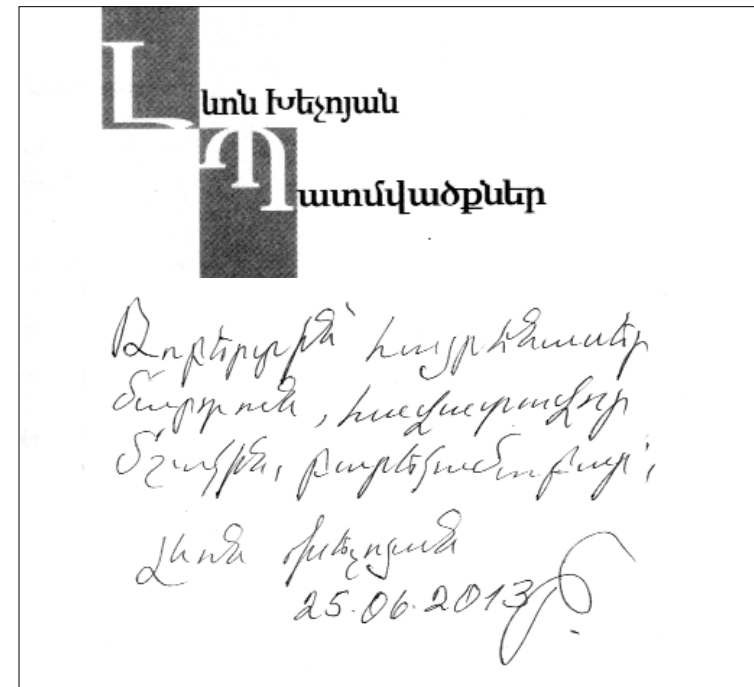 Լևոն Խեչոյան
Պատմվածքներ
հայրենասեր
մարդուն, հավատավոր
մշակին, բարեկամաբար,
Լևոն Խեչոյան
25.06.2013